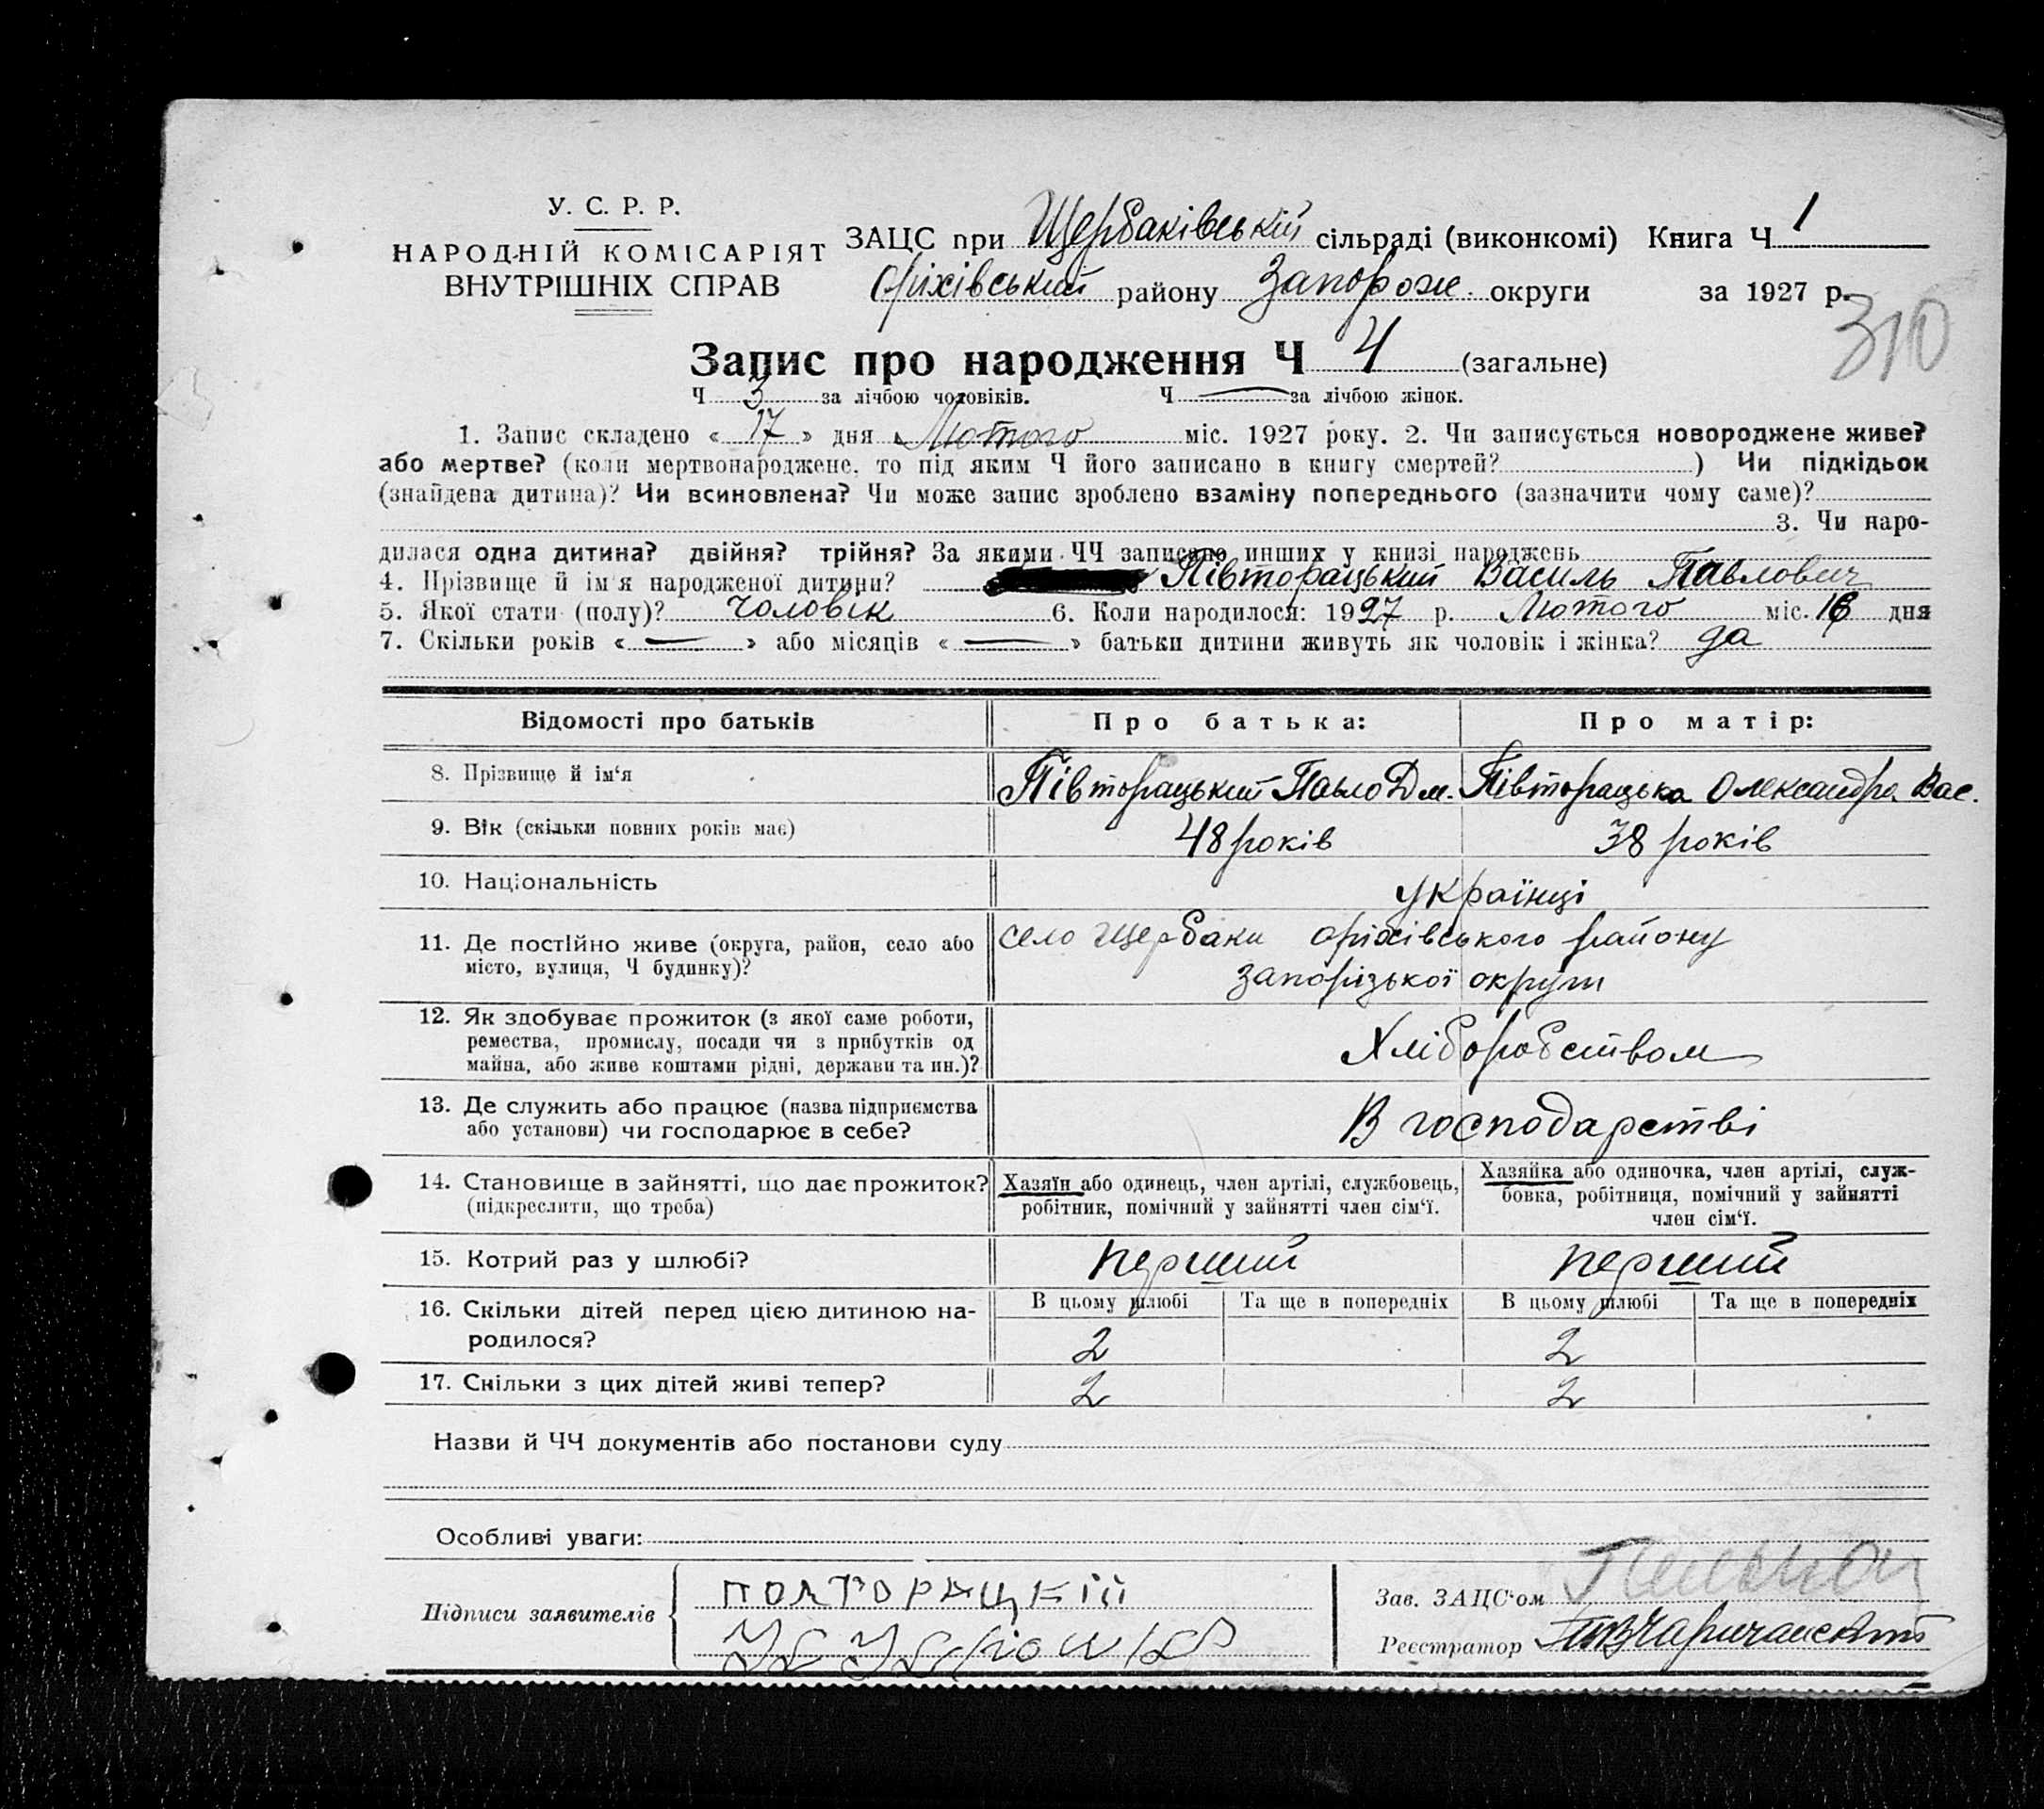 У. С. Р. Р.
НАРОДНІЙ КОМІСАРІЯТ
ВНУТРІШНІХ СПРАВ
ЗАЦС при Щербаківській сільраді (виконкомі) Книга Ч 1
Оріхівський району Запорож. округи за 1927 р.
310
Запис про народження Ч 4 (загальне)
Ч 3 за лічбою чоловіків. Ч — за лічбою жінок.
1. Запис складено « 17 » дня Лютого міс. 1927 року. 2. Чи записується новороджене живе?
або мертве? (коли мертвонароджене, то під яким Ч його записано в книгу смертей? ) Чи підкідьок
(знайдена дитина)? Чи всиновлена? Чи може запис зроблено взаміну попереднього (зазначити чому саме)?
3. Чи наро-
дилася одна дитина? двійня? трійня? За якими ЧЧ записано инших у книзі народжень
4. Прізвище й ім'я народженої дитини? Півторацький Василь Павлович
5. Якої стати (полу)? чоловік 6. Коли народилося: 1927 р. Лютого міс. 16 дня
7. Скільки років « — » або місяців « — » батьки дитини живуть як чоловік і жінка? да
Відомості про батьків Про батька: Про матір:
8. Прізвище й ім'я Півторацький Павло Дм. Півторацька Олександра Вас.
9. Вік (скільки повних років має) 48 років 38 років
10. Національність українці
11. Де постійно живе (округа, район, село або село Щербаки оріхівського району
місто, вулиця, Ч будинку)? запорізької округи
12. Як здобуває прожиток (з якої саме роботи,
ремества, промислу, посади чи з прибутків од Хліборобством
майна, або живе коштами рідні, держави та ин.)?
13. Де служить або працює (назва підприємства В господарстві
або установи) чи господарює в себе?
14. Становище в зайнятті, що дає прожиток? Хазяїн або одинець, член артілі, службовець, Хазяйка або одиночка, член артілі, служ-
(підкреслити, що треба) робітник, помічний у зайнятті член сім'ї. бовка, робітниця, помічний у зайнятті
член сім'ї.
15. Котрий раз у шлюбі? перший перший
16. Скільки дітей перед цією дитиною на- В цьому шлюбі Та ще в попередніх В цьому шлюбі Та ще в попередніх
родилося? 2 2
17. Скільки з цих дітей живі тепер? 2 2
Назви й ЧЧ документів або постанови суду
Особливі уваги:
Підписи заявителів полторацкій
Зав. ЗАЦС'ом
Реєстратор